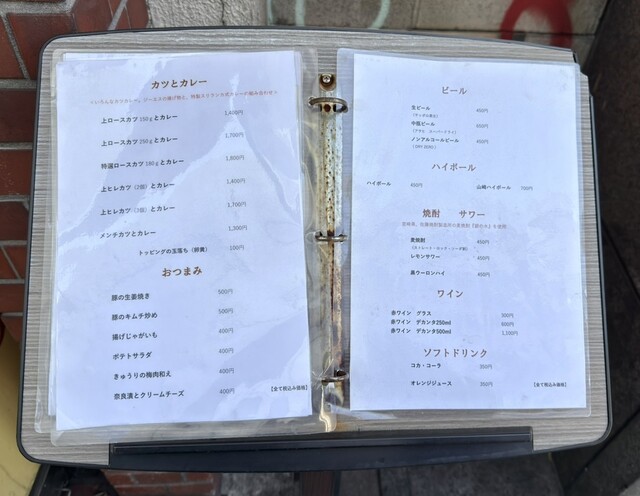 カツとカレー
上ロースカツ 150gとカレー 1,400円
上ロースカツ 250gとカレー 1,700円
特選ロースカツ 180gとカレー 1,800円
上ヒレカツ（2個）とカレー 1,400円
上ヒレカツ（3個）とカレー 1,700円
メンチカツとカレー 1,300円
トッピングの玉落ち（卵黄） 100円
おつまみ
豚の生姜焼き 500円
豚のキムチ炒め 500円
揚げじゃがいも 400円
ポテトサラダ 400円
きゅうりの梅肉和え 400円
奈良漬とクリームチーズ 400円
【全て税込み価格】
ビール
生ビール 450円
中瓶ビール 600円
（アサヒ スーパードライ）
ノンアルコールビール 450円
ハイボール
ハイボール 450円 山崎ハイボール 700円
焼酎 サワー
麦焼酎 450円
（ストレート・ロック・ソーダ割）
レモンサワー 450円
烏ウーロンハイ 450円
ワイン
赤ワイン グラス 300円
赤ワイン デカンタ250ml 600円
赤ワイン デカンタ500ml 1,100円
ソフトドリンク
コカ・コーラ 350円
オレンジジュース 350円
【全て税込み価格】